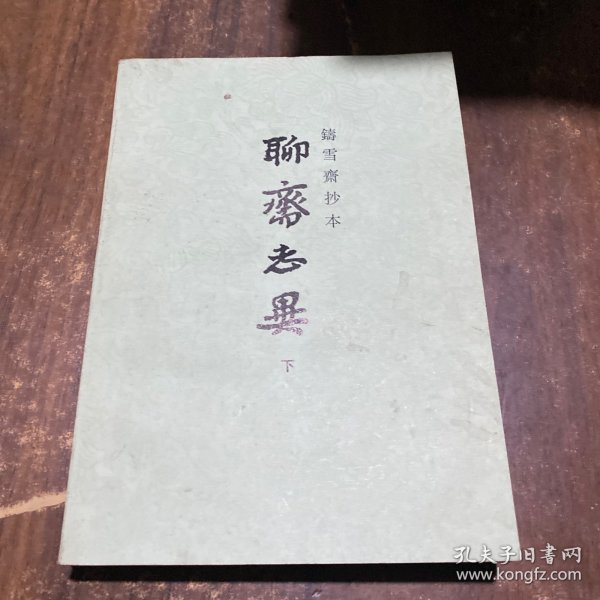 鑄雪齋抄本
聊齋志異
下
孔夫子旧书网
www.kongfz.com